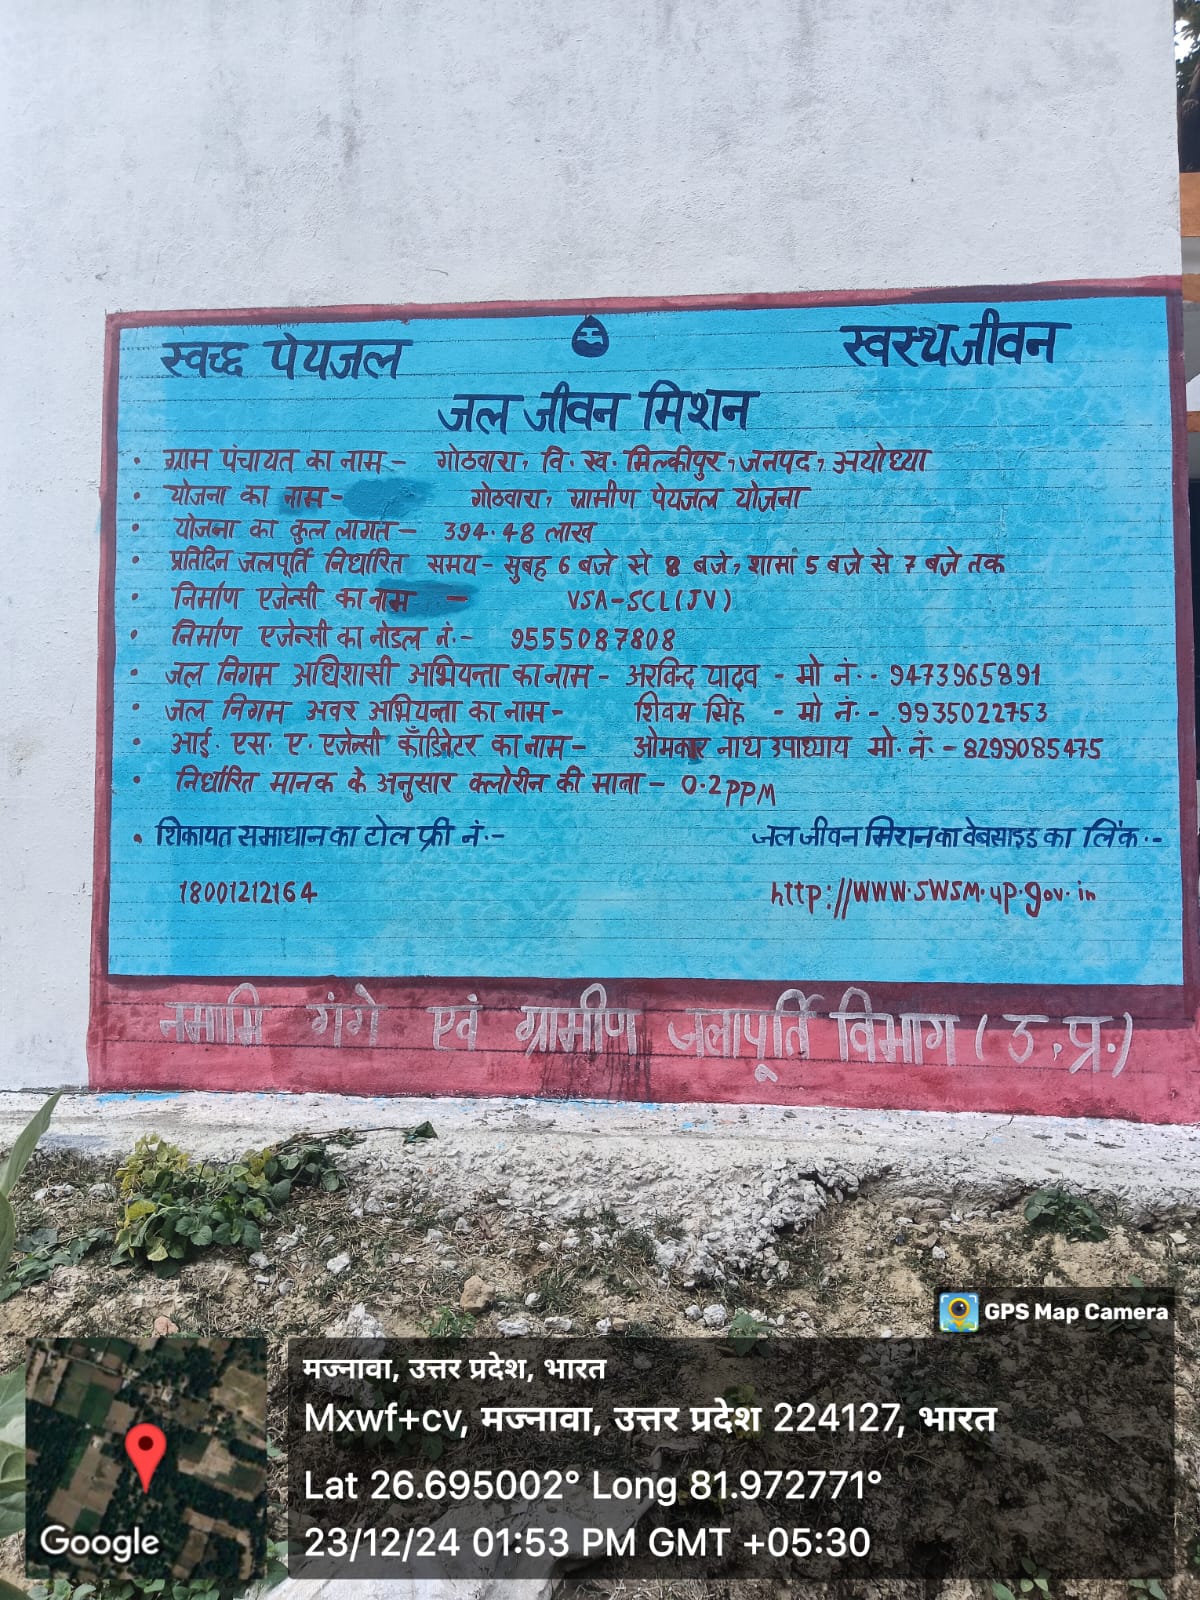 स्वच्छ पेयजल
स्वस्थ जीवन
जल जीवन मिशन
• ग्राम पंचायत का नाम - गोठवारा, वि. ख. मिल्कीपुर, जनपद, अयोध्या
• योजना का नाम - गोठवारा, ग्रामीण पेयजल योजना
• योजना का कुल लागत - 394.48 लाख
• प्रतिदिन जलपूर्ति निर्धारित समय - सुबह 6 बजे से 8 बजे, शामां 5 बजे से 7 बजे तक
• निर्माण एजेन्सी का नाम - VSA-SCL(JV)
• निर्माण एजेन्सी का नोडल नं.- 9555087808
• जल निगम अधिशासी अभियन्ता का नाम - अरविन्द यादव - मो नं.- 9473965891
• जल निगम अवर अभियन्ता का नाम - शिवम सिंह - मो नं.- 9935022753
• आई. एस. ए. एजेन्सी काँडिनेटर का नाम - ओमकार नाथ उपाध्याय मो. नं.- 8299085475
• निर्धारित मानक के अनुसार क्लोरीन की मात्रा - 0.2PPM
• शिकायत समाधान का टोल फ्री नं.-
जल जीवन मिशन का वेबसाइड का लिंक.-
18001212164
http://www.swsm.up.gov.in
नमामि गंगे एवं ग्रामीण जलापूर्ति विभाग (उ.प्र.)
GPS Map Camera
मज्नावा, उत्तर प्रदेश, भारत
Mxwf+cv, मज्नावा, उत्तर प्रदेश 224127, भारत
Lat 26.695002° Long 81.972771°
23/12/24 01:53 PM GMT +05:30
Google